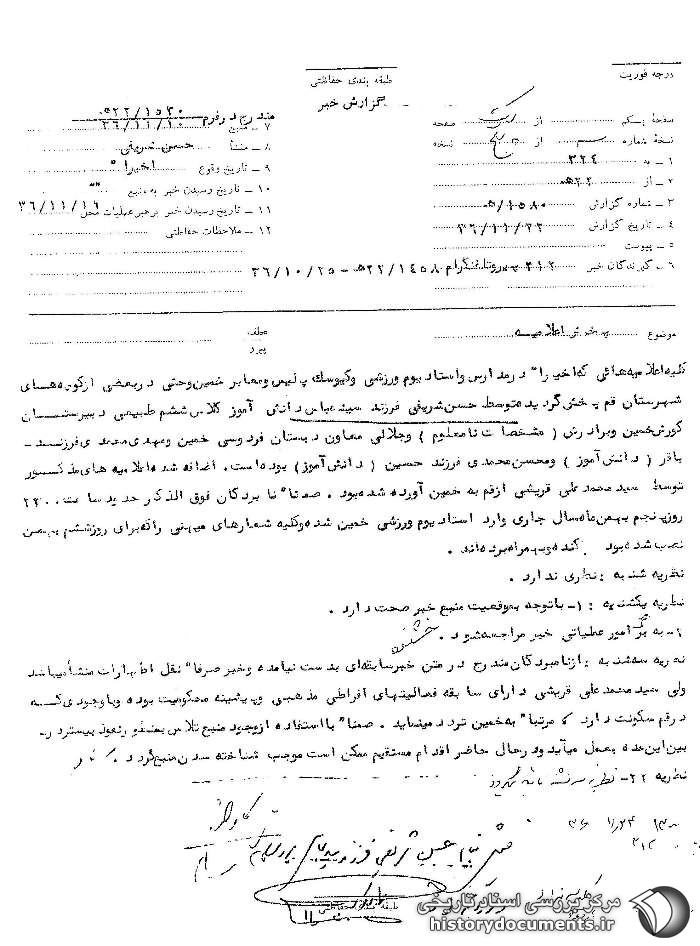 درجه فوریت
طبقه بندی حفاظتی
گزارش خبر
صفحه یکم از یک صفحه
نسخه شماره از پنج نسخه
۱ – به ۳۲۴
۲ – از ۵۲۲
۳ – شماره گزارش ۵/۱۵۸۰
۴ – تاریخ گزارش ۳۶/۱۱/۲۲
۵ – پیوست
۶ – گیرندگان خبر ۳۱۲ پیرو تلفنگرام ۵۲۲/۱۴۵۸ – ۳۶/۱۰/۲۵
مندرج در فرم ۵۲۲/۱۵۳۰
۷ – منبع ۳۶/۱۱/۱۰
۸ – منشأ حسن شریفی
۹ – تاریخ وقوع اخیرا"
۱۰ – تاریخ رسیدن خبر به منبع ""
۱۱ – تاریخ رسیدن خبر برهبر عملیات محل ۳۶/۱۱/۱۶
۱۲ – ملاحظات حفاظتی
موضوع پخش اعلامیه
عطف
پیرو
کلیه اعلامیه هائی که اخیرا" در مدارس و استادیوم ورزشی و کیوسک پلیس و معابر خمین و حتی در بعضی از کوچه های
شهرستان قم پخش گردیده توسط حسن شریفی فرزند سید عباس دانش آموز کلاس ششم طبیعی دبیرستان
کورش خمین و برادرش ( مشخصات نامعلوم ) و جلالی معاون دبستان فردوسی خمین و مهدی محمدی فرزند
باقر ( دانش آموز ) و محسن محمدی فرزند حسین ( دانش آموز ) بوده است. اضافه شد اعلامیه های مذکور
توسط سید محمد علی قریشی از قم به خمین آورده شده بود . ضمنا" نامبردگان فوق الذکر حدید ساعت ۲۳۰۰
روز پنجم بهمن ماه سال جاری وارد استادیوم ورزشی خمین شده و کلیه شعارهای میهنی را که برای روز ششم بهمن
نصب شده بود کنده و بهمراه برده اند .
نظریه شنبه : نظری ندارد .
نظریه یکشنبه : ۱– با توجه بموقعیت منبع خبر صحت دارد .
۲– به برگ امور عملیاتی خبر مراجعه شود .
نظریه سه شنبه : از نامبردگان مندرج در متن خبر سابقه ای بدست نیامده و خبر صرفا" نقل اظهارات منشأ میباشد
ولی سید محمد علی قریشی دارای سابقه فعالیتهای افراطی مذهبی و پیشینه محکومیت بوده و با وجودی که
در قم سکونت دارد مرتبا" به خمین تردد مینماید . ضمنا" با استفاده از وجود منبع تلاش بمنظور نفوذ بیشتر در
بین این عده بعمل میآید و در حال حاضر اقدام مستقیم ممکن است موجب شناخته شدن منبع گردد .
نظریه ۲۲–
۳۶ ۱۱/۲۴
۳۱۲
طبقه بندی حفاظتی
مرکز بررسی اسناد تاریخی
historydocuments.ir